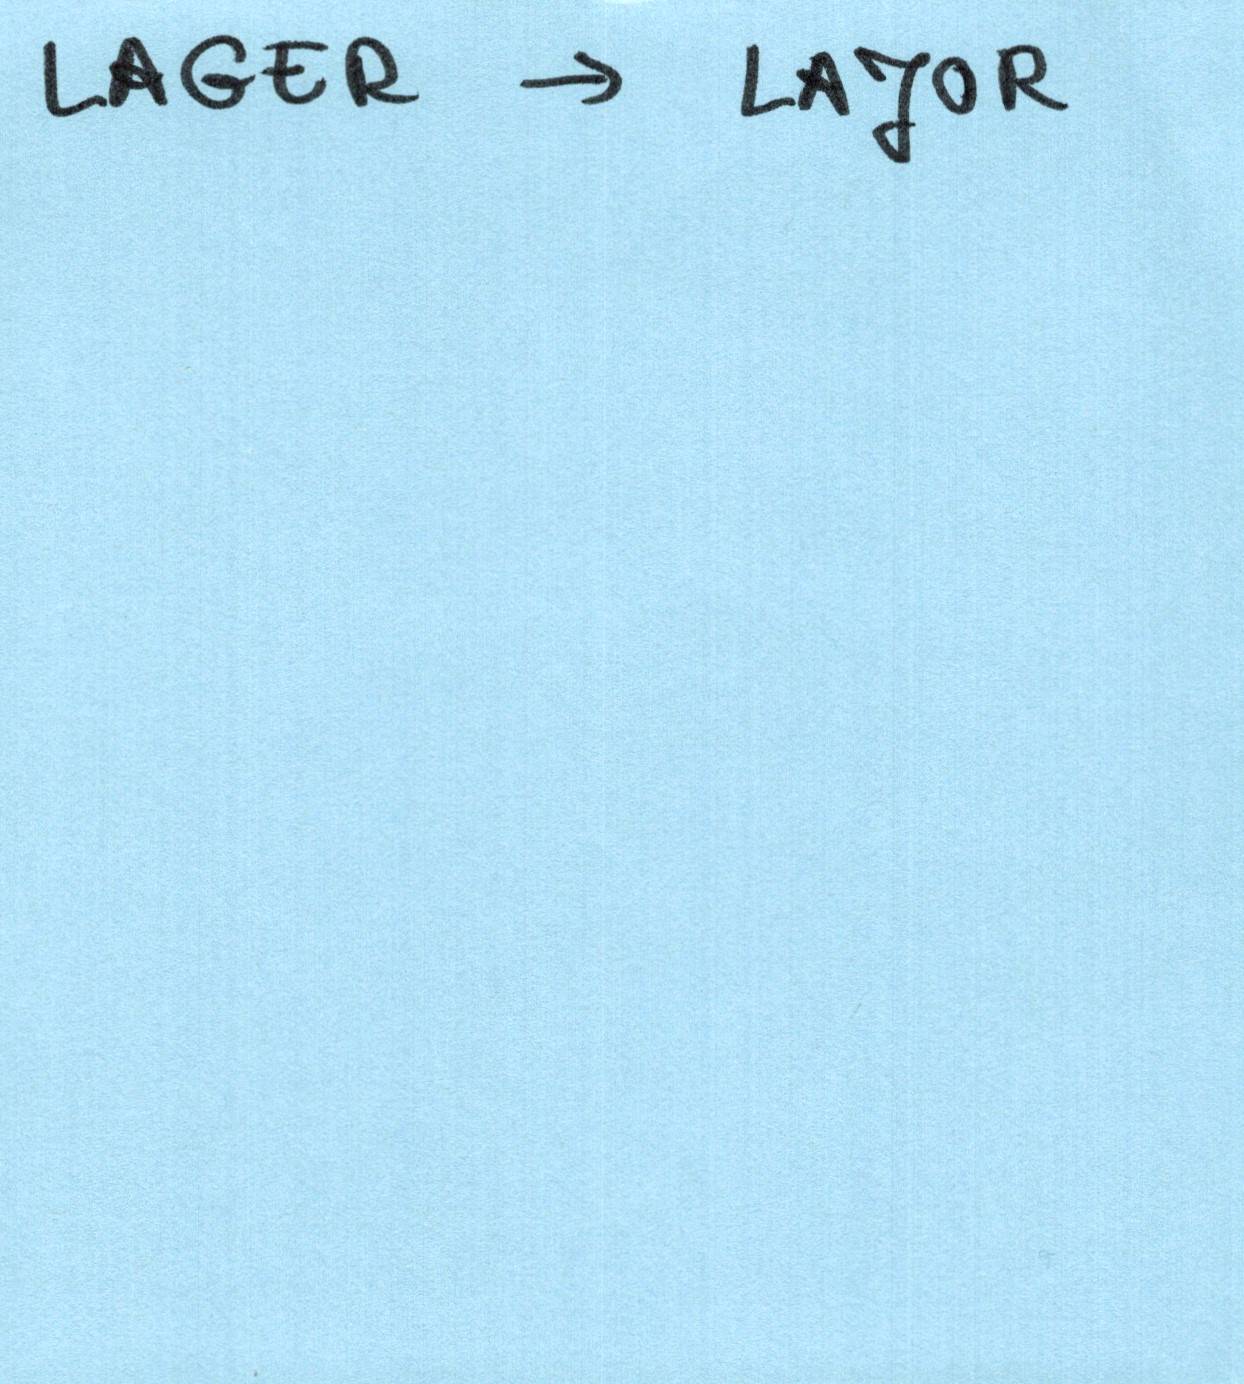 LAGER → LAJOR